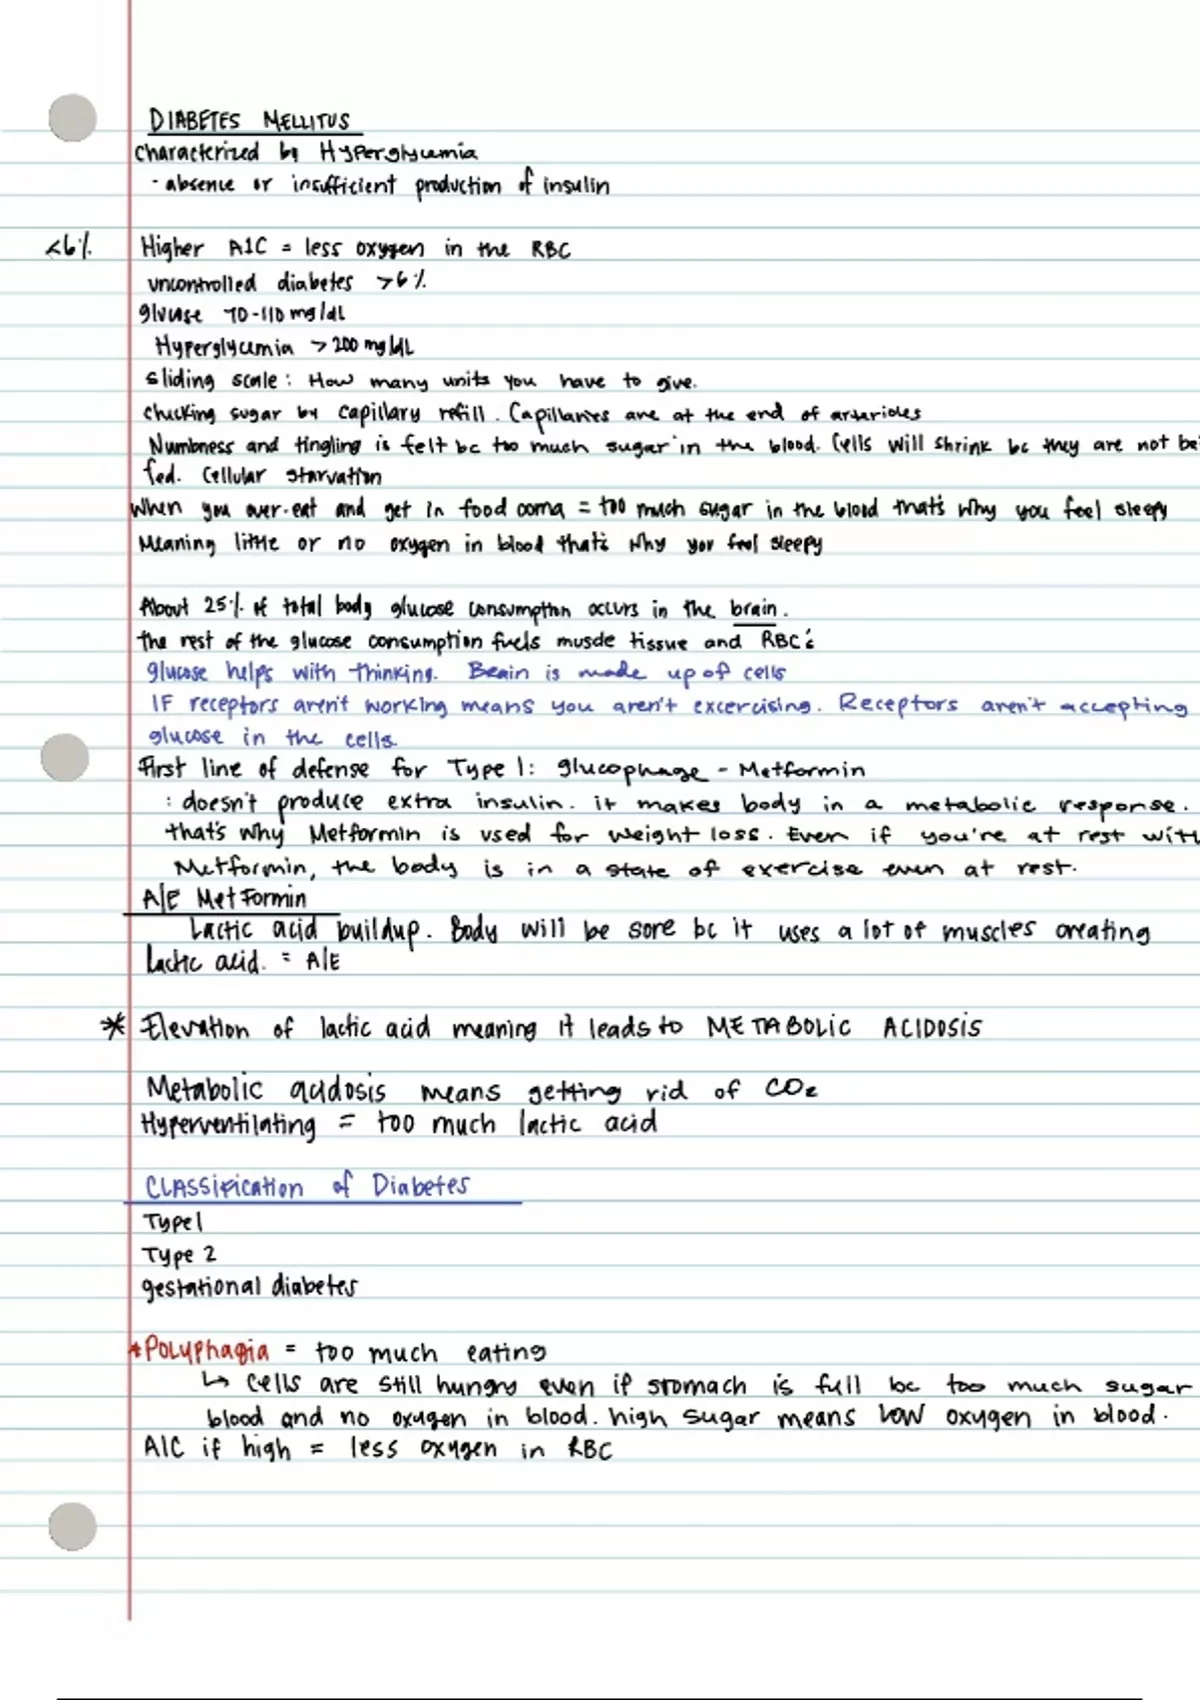 DIABETES MELLITUS
Characterized by Hyperglycemia
- absence or insufficient production of insulin
<6% Higher A1C = less oxygen in the RBC
uncontrolled diabetes >6%
glucose 70-110 mg/dL
Hyperglycemia > 200 mg/dL
sliding scale: How many units you have to give.
Checking sugar by capillary refill. Capillaries are at the end of arterioles
Numbness and tingling is felt bc too much sugar in the blood. Cells will shrink bc they are not be
fed. Cellular starvation
When you over-eat and get in food coma = too much sugar in the blood that's why you feel sleepy
Meaning little or no oxygen in blood that's why you feel sleepy
About 25% of total body glucose consumption occurs in the brain.
the rest of the glucose consumption fuels muscle tissue and RBC's
glucose helps with thinking. Brain is made up of cells
IF receptors aren't working means you aren't excercising. Receptors aren't accepting
glucose in the cells.
First line of defense for Type 1: glucophage - Metformin
: doesn't produce extra insulin. it makes body in a metabolic response.
that's why Metformin is used for weight loss. Even if you're at rest with
Metformin, the body is in a state of exercise even at rest.
A/E Metformin
Lactic acid buildup. Body will be sore bc it uses a lot of muscles creating
lactic acid. = A/E
* Elevation of lactic acid meaning it leads to METABOLIC ACIDOSIS
Metabolic acidosis means getting rid of CO2
Hyperventilating = too much lactic acid
Classification of Diabetes
Type 1
Type 2
gestational diabetes
*Polyphagia = too much eating
↳ cells are still hungry even if stomach is full bc too much sugar
blood and no oxygen in blood. high sugar means low oxygen in blood.
A1C if high = less oxygen in RBC